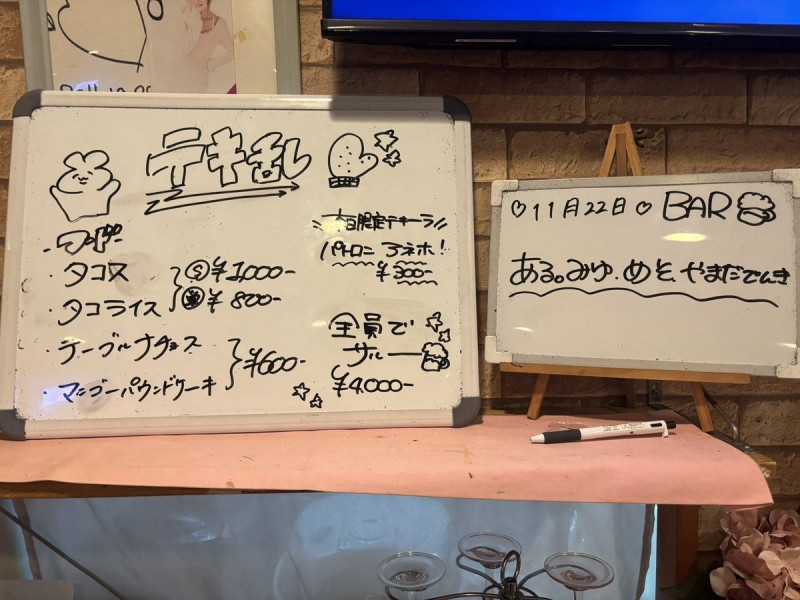 テキ乱
フード
・タコス
・タコライス
¥1,000-
¥800-
・テーブルナチョス
・マンゴーパウンドケーキ
¥600-
本日限定テキーラ
パトロン アネホ!
¥300-
全員で
サルー
¥4,000-
♡11月22日♡ BAR
ある。みゆ.めそ.やまだでんき